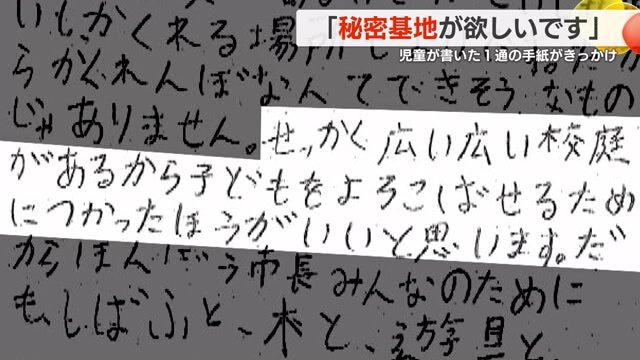 「秘密基地が欲しいです」
児童が書いた1通の手紙がきっかけ
もかくれる場所
らかくれんぼなんてできそうなもの
じゃありません。せっかく広い広い校庭
があるから子どもをよろこばせるため
につかったほうがいいと思います。だ
からほんぼう市長みんなのために
も、しばふと、木と、遊具と